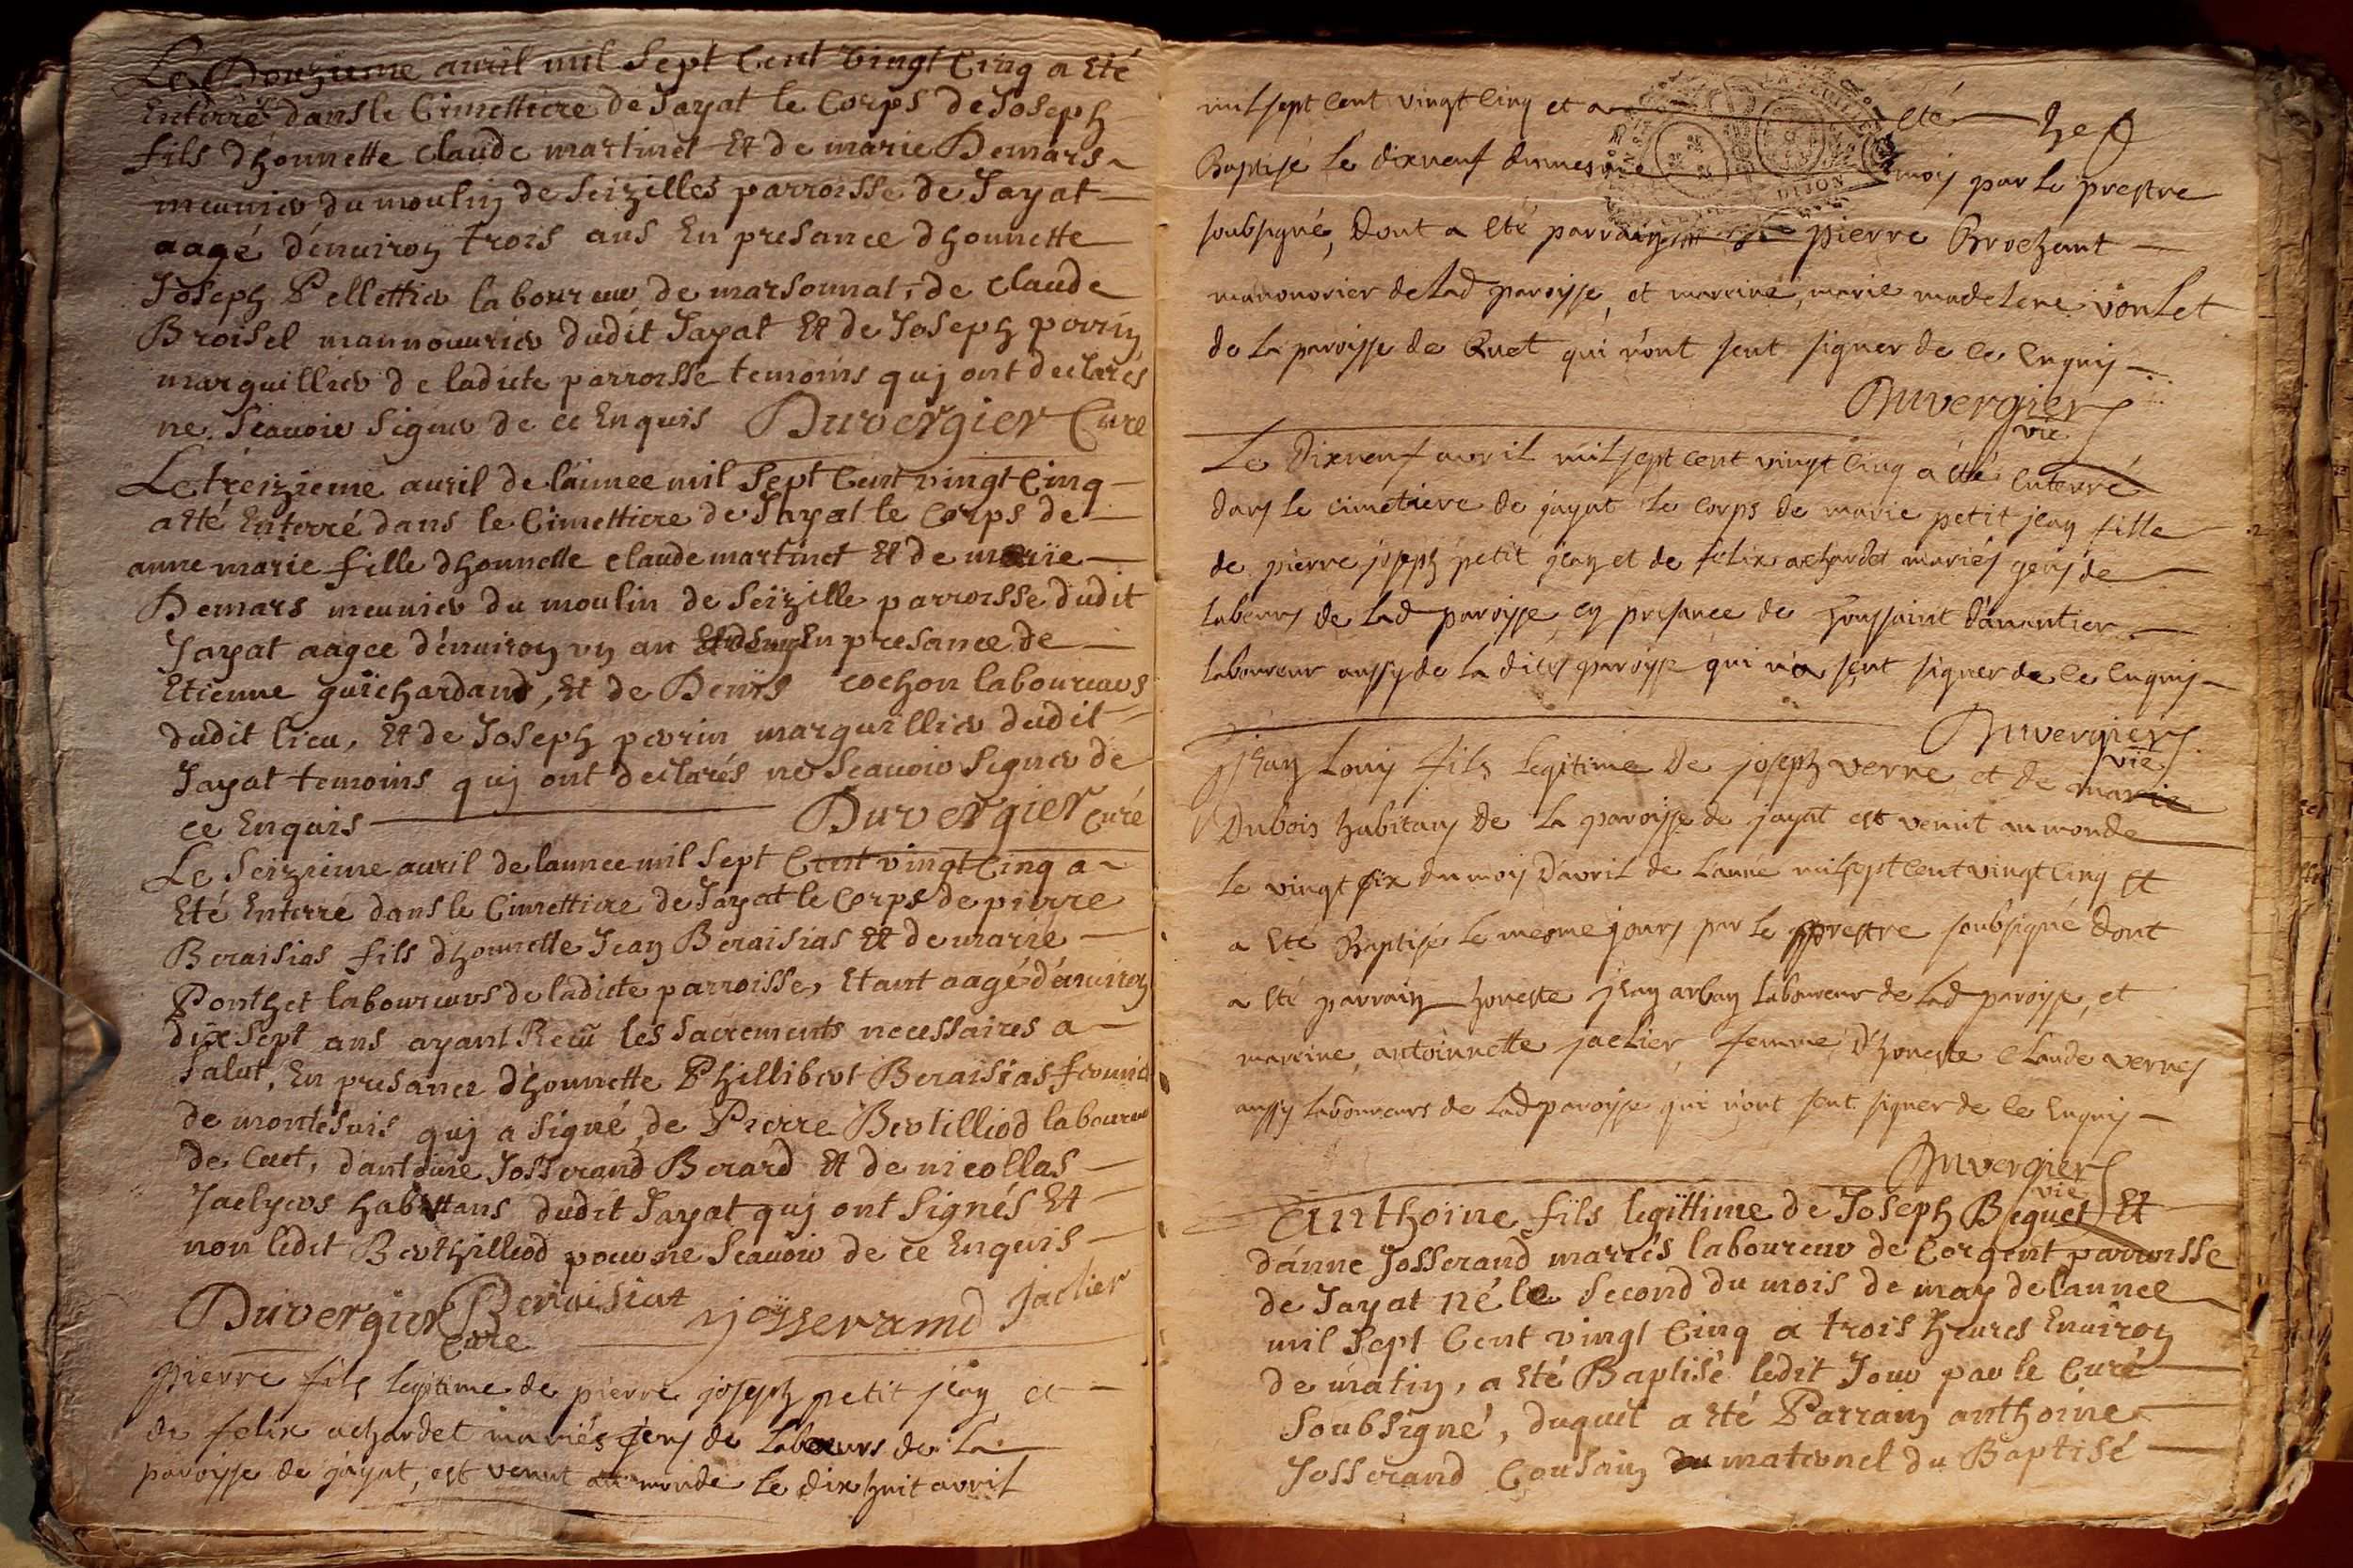 Le Douzieme auril mil Sept Cent Vingt Cinq a Eté
Enterré dans le Cimettiere de Jayat le Corps de Joseph
fils dhonnette claude martinet Et de marie Demars
meunier du moulin de Seizilles parroisse de Jayat
aagé d'enuiron trois ans En presance dhonnette
Joseph Pellettier laboureur de marsonnat, de claude
Broisel mannouurier dudit Jayat Et de Joseph perrin
marguillier de ladicte parroisse temoins quj ont declarés
ne Scauoir Signer de ce Enquis Duvergier Curé
Le treizieme auril de lánnee mil Sept Cent vingt Cinq
a Eté Enterré dans le Cimettiere de Jayat le Corps de
anne marie fille dhonnette claude martinet Et de marie
Demars meunier du moulin de Seizille parroisse dudit
Jayat aagee d'enuiron un an Et demy En presance de
Etienne guichardand, Et de Denis cochon laboureurs
dudit lieu, Et de Joseph perrin marguillier dudit
Jayat temoins quj ont declarés ne Scauoir Signer de
ce Enquis Duvergier curé
Le Seizieme auril de lannee mil Sept Cent vingt Cinq a
Eté Enterré dans le Cimettiere de Jayat le Corps de pierre
Beraisias fils dhonnette Jean Beraisias Et de marie
Ponthet laboureurs de ladicte parroisse, Etant aagé d'enuiron
dix Sept ans ayant Recû les Sacrements necessaires a
Salut, En presance dhonnette Phillibert Beraisias
de montesuis quj a Signé, de Pierre Bertilliod laboureur
de Cuet, dantoine Josserand Berard Et de nicollas
Jaelyers habittans dudit Jayat quj ont Signés Et
non ledit Berthilliod pour ne Scauoir de ce Enquis
Duvergier Beraisiat josserand Jaclier
Curé
pierre fils legitime de pierre joseph petit jean et
de felix achardet mariés gens de Labeurs de La
paroisse de jayat, est venut au monde Le dix huit avril
mil sept cent vingt cinq et a eté
Baptisé Le dixneuf du mesme mois par Le prestre
soubsigné, Dont a eté parrain pierre Brochant
manouvrier de Lad paroisse, et mareine, marie madelene vonLet
de La paroisse de Cuet qui n'ont sçut signer de ce Enquis
Duvergier
vic
Le Dixneuf avril mil sept cent vingt cinq a été enterré
dans le cimetiere de jayat Le corps de marie petit jean fille
de pierre joseph petit jean et de felix achardet mariés gens de
Labeurs de Lad paroisse en presance de Toussaint Danantier
Laboureur aussy de La dicte paroisse qui n'a sçut signer de ce Enquis
Duvergier
vic
jean Louis fils Legitime de joseph verne et de marie
Dubois habitans de La paroisse de jayat est venut au monde
Le vingt six du mois D'avril de L'année mil sept cent vingt cinq et
a eté Baptisé Le mesme jours par Le prestre soubsigné dont
a eté parrain honeste jean arban Laboureur de Lad paroisse, et
mareine, antoinnette jaclier, femme D'honeste claude vernes
aussy Laboureurs de Lad paroisse qui n'ont sçut signer de ce Enquis
Duvergier
vic
Anthoine fils legittime de Joseph Beguet Et
dánne Josserand mariés laboureur de Corgent parroisse
de Jayat né le Second du mois de may de lannee
mil Sept Cent vingt Cinq a trois heures Enuiron
de matin, a Eté Baptisé ledit Jour par le Curé
Soubsigné, duquel a eté Parrain anthoine
Josserand Cousin maternel du Baptisé